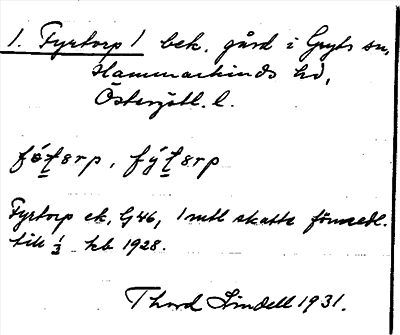 1. Fyrtorp 1 bek. gård i Gryts sn,
Hammarkinds hd,
Östergötl. l.
fó̤t̲ərp, fýt̲ərp
Fyrtorp ek. G46, 1 mtl skatte förmedl.
till 1/3 kb 1928.
Thord Lindell 1931.